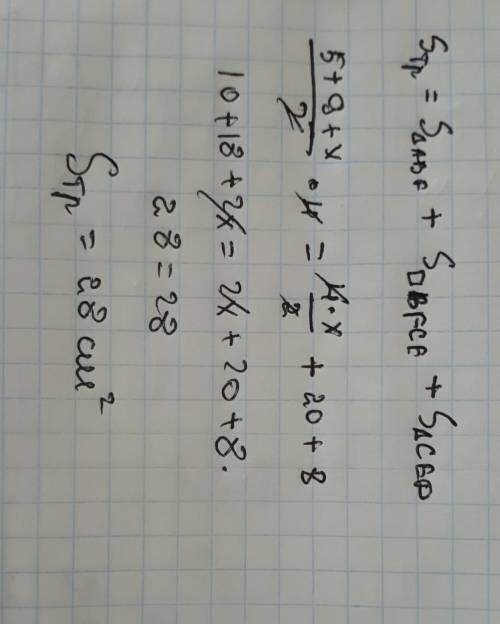 Sтр = S△ABF + S□BFCE + S△CED
(5+9+x)/2 · 4 = (4·x)/2 + 20 + 8
10+18+2x = 2x + 20 + 8.
28 = 28
Sтр = 28 см²